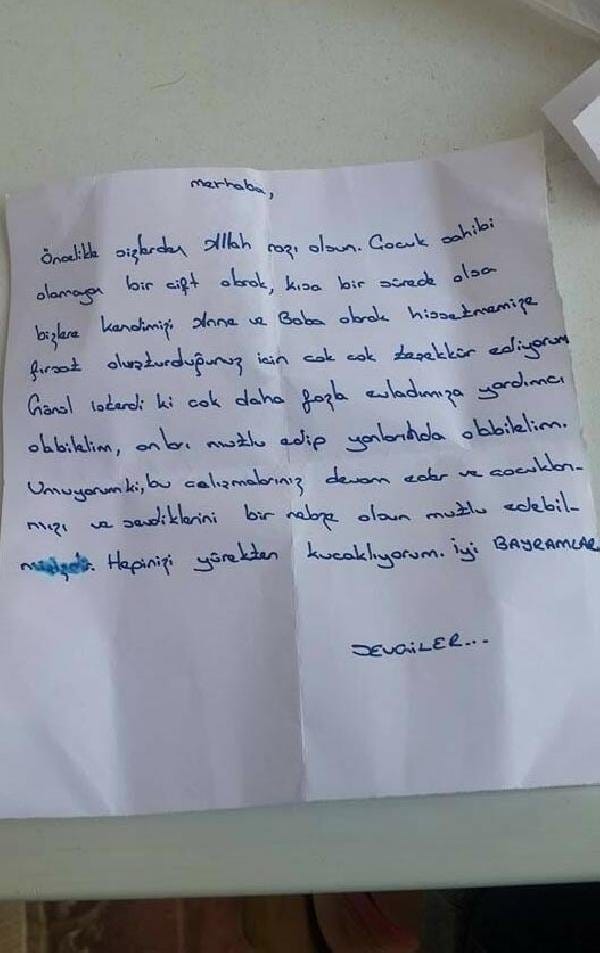 Merhaba,
Öncelikle sizlerden Allah razı olsun. Çocuk sahibi
olamayan bir çift olarak, kısa bir sürede olsa
bizlere kendimizi Anne ve Baba olarak hissetmemize
fırsat oluşturduğunuz için çok çok teşekkür ediyorum
Gönül isterdi ki çok daha fazla evladımıza yardımcı
olabilelim, onları mutlu edip yanlarında olabilelim.
Umuyorum ki, bu çalışmalarınız devam eder ve çocukları-
mızı ve sevdiklerini bir nebze olsun mutlu edebil-
Hepinizi yürekten kucaklıyorum. İyi BAYRAMLAR
SEVGİLER...